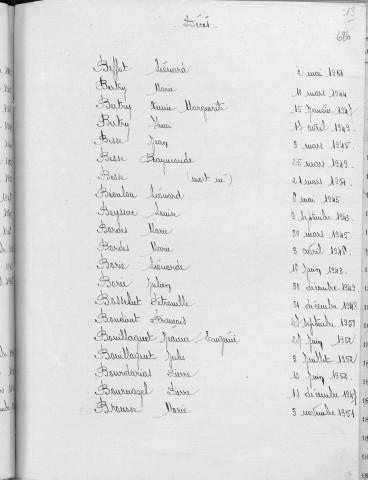 13
686
Décès
Beffat Léonard 2 mai 1951
Bertry Marie 11 mars 1944
Bertry Marguerite 15 janvier 1947
Bertry 17 avril 1949
Besse Jean 3 mars 1945
Besse Raymonde 25 mars 1949
Besse (mort né) 21 mars 1951
Léonard 8 mai 1945
Beyssac Louise 9 septembre 1943
Bordes Marie 30 mars 1945
Bordes Marie 3 avril 1948
Borie Léonarde 18 juin 1943
Borie Julien 30 décembre 1949
Bosselut 31 décembre 1948
Boudrit François 27 septembre 1951
Bouillaguet Jeanne-Eugénie 27 juin 1952
Bouillaguet Jules 3 juillet 1952
Bourdarias Pierre 12 juin 1951
Bournazel Pierre 11 décembre 1947
Brousse Marie 3 novembre 1951